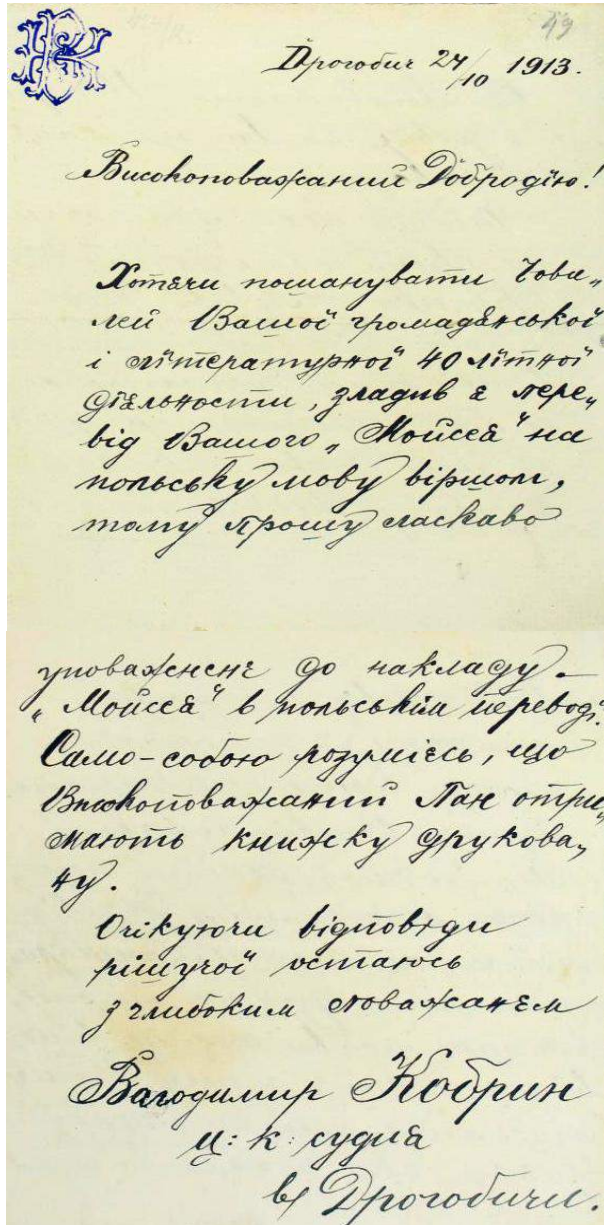 49
Дрогобич 24/10 1913.
Високоповажаний Добродїю!
Хотячи пошанувати Юви„
лей Вашої громадянської
і лїтературної 40 лїтної
дїяльности, зладив я пере„
від Вашого „Мойсея“ на
польську мову віршом,
тому прошу ласкаво
уповаженє до накладу –
„Мойсея“ в польськім переводї.
Само-собою розумієсь, що
Високоповажаний Пан отри„
мають книжку друкова„
ну.
Очікуючи відповіди
рішучої остаюсь
з глибоким поважанєм
Володимир Кобрин
ц: к: судия
в Дрогобичи.